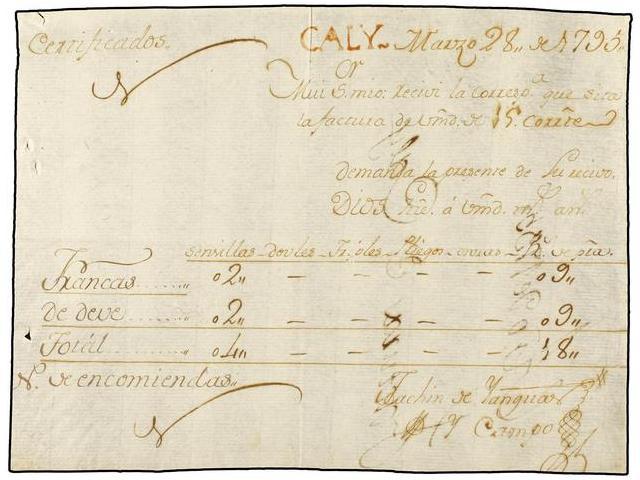 Certificados.
CALY. Marzo 28,, de 1795,,
Mui S.or mio: recivi la correspo.a que sita
la factura de Vmd. de 15. corrte
Demanda la presente de su recivo.
Dios gue. á Vmd. ms. an.
senvillas Dovles Triples Pliegos onzas Rs. de pta.
Francas ....... ,, 02,, — — — — 09,,
de deve ....... ,, 02,, — — — — 09,,
Totál ....... ,, 04,, — — — — 18,,
N.o de encomiendas,,
de Yanguas
y Campo